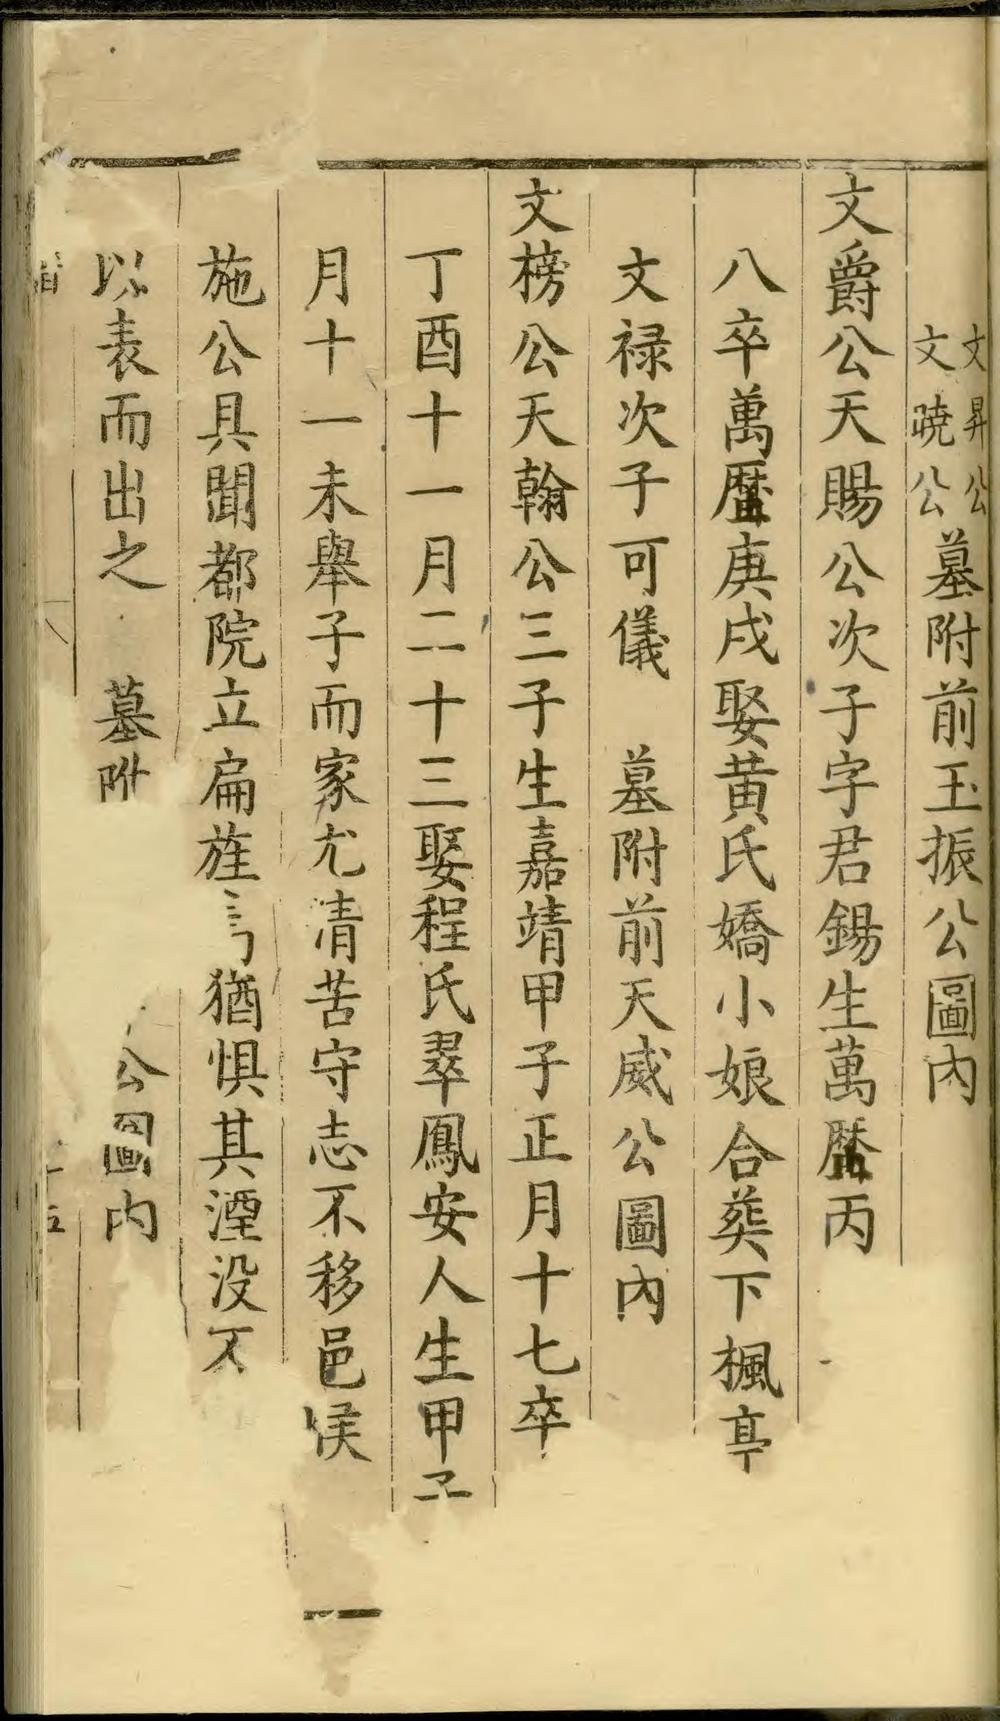 文昇公
文曉公
墓附前玉振公圖內
文爵公天賜公次子字君錫生萬曆丙
八卒萬曆庚戌娶黃氏嬌小娘合葬下楓亭
文禄次子可儀　墓附前天威公圖內
文榜公天翰公三子生嘉靖甲子正月十七卒
丁酉十一月二十三娶程氏翠鳳安人生甲子
月十一未舉子而家尤清苦守志不移邑侯
施公具聞都院立扁旌 猶惧其湮没不
以表而出之　墓附 公圖内